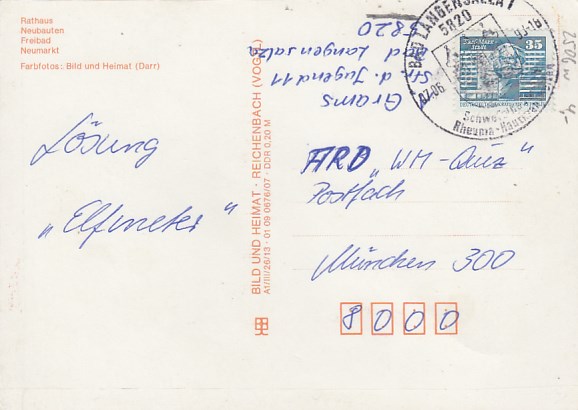 Rathaus
Neubauten
Freibad
Neumarkt
Farbfotos: Bild und Heimat (Darr)
Lösung
„Elfmeter"
BILD UND HEIMAT · REICHENBACH (VOGTL)
A1/III/26/13 · 01 09 0676/07 · DDR 0,20 M
Grams
Str. d. Jugend 11
Bad Langensalza
5820
BAD LANGENSALZA 1
5820
07.06
90-18
35
ARD „WM-Quiz"
Postfach
München 300
8000
2506 w 4,-